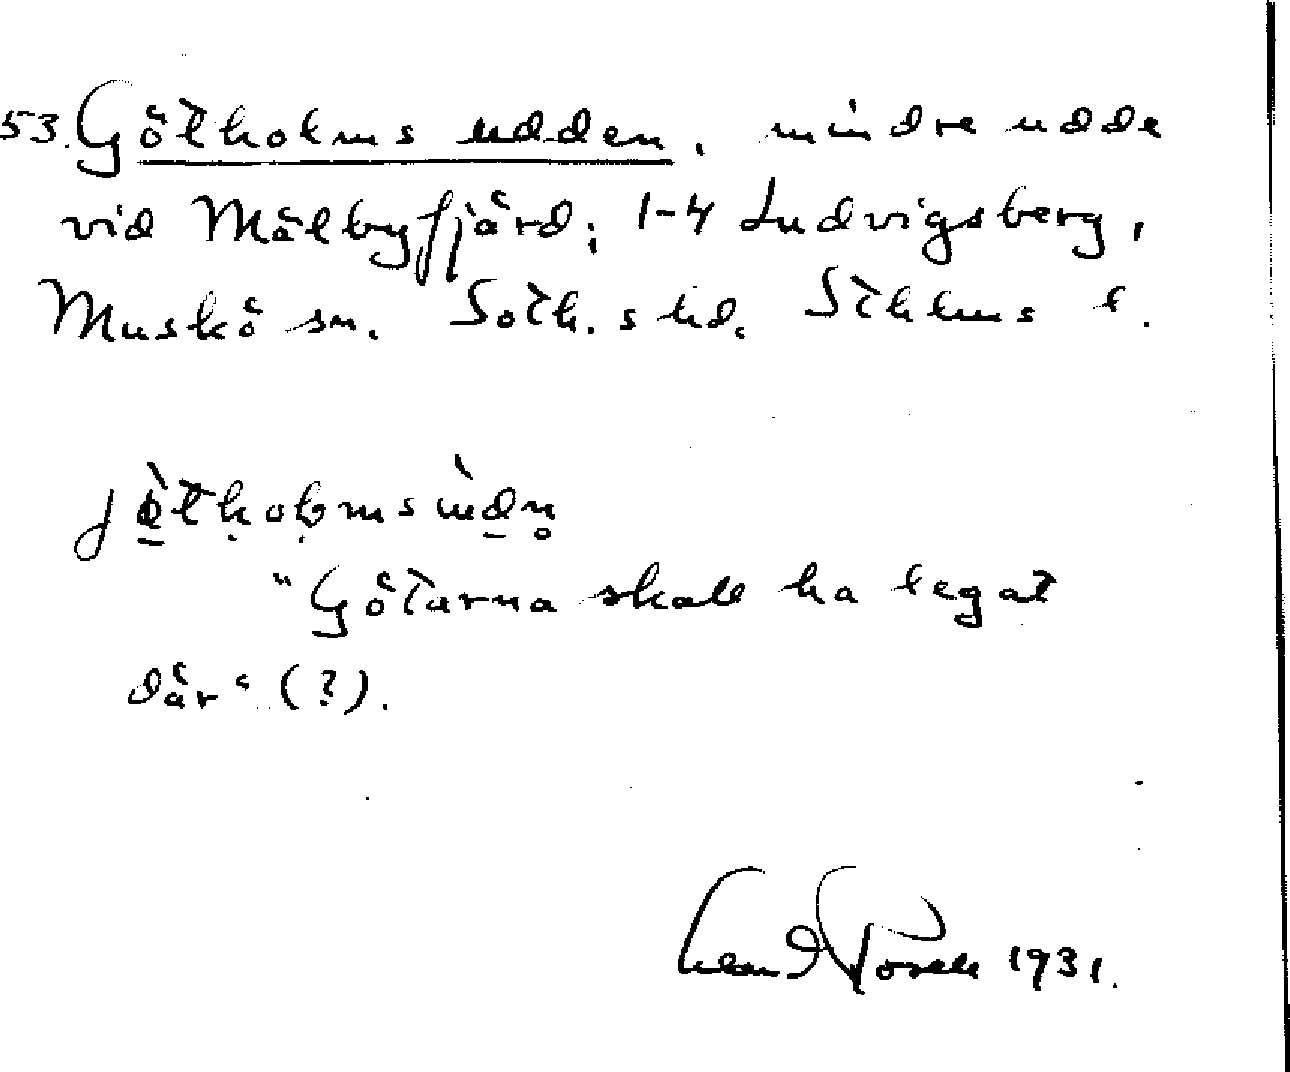 53. Götholmsudden, mindre udde
vid Mälbyfjärd; 1-4 Ludvigsberg,
Muskö sn. Soth. s hd. Sthlms l.
jø̀tholmsùdn
"Götarna skall ha legat
där" (?).
1931.